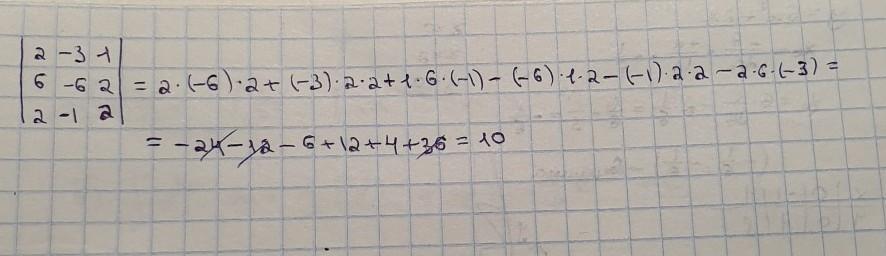 2 -3 1
6 -6 2 = 2·(-6)·2+(-3)·2·2+1·6·(-1)-(-6)·1·2-(-1)·2·2-2·6·(-3)=
2 -1 2
= -24-12-6+12+4+36=10